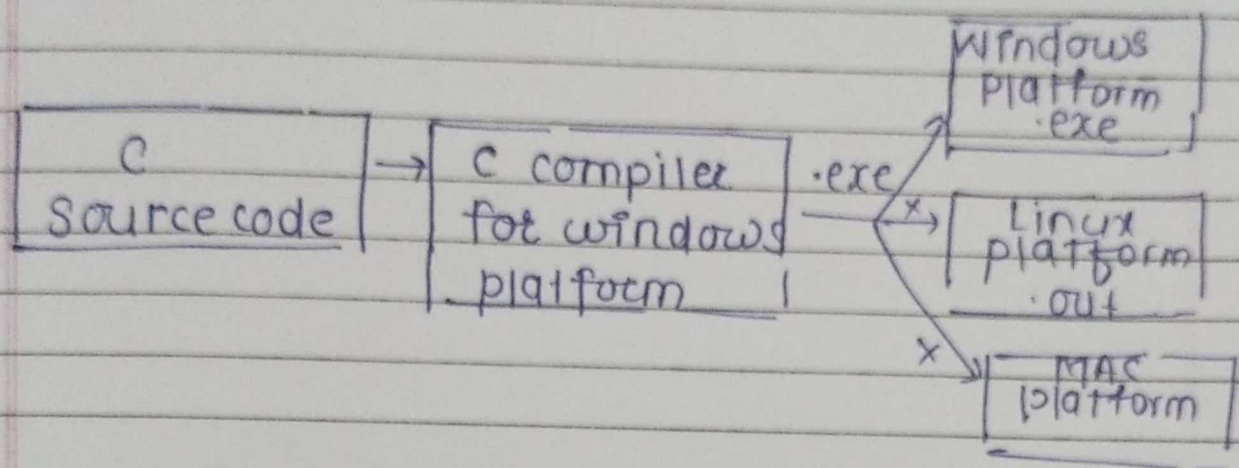 C
source code
C compiler
for windows
platform
.exe
Windows
platform
.exe
x
Linux
platform
.out
x
MAC
platform